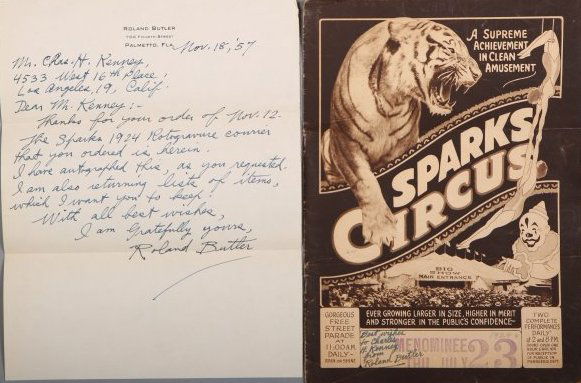 ROLAND BUTLER
PALMETTO, FLA.
Nov. 18, '57
Mr. Chas. H. Kenney,
4533 West 16th Place,
Los Angeles, 19, Calif.
Dear Mr. Kenney:-
Thanks for your order of Nov. 12-
The Sparks 1924 Rotogravure courier
that you ordered is herein.
I have autographed this, as you requested.
I am also returning lists of items,
which I want you to keep.
With all best wishes,
I am Gratefully yours,
Roland Butler
A SUPREME
ACHIEVEMENT
IN CLEAN
AMUSEMENT
SPARKS
CIRCUS
BIG
SHOW
MAIN ENTRANCE
GORGEOUS
FREE
STREET
PARADE
AT
11:00 A.M.
DAILY~
RAIN OR SHINE
EVER GROWING LARGER IN SIZE, HIGHER IN MERIT
AND STRONGER IN THE PUBLIC'S CONFIDENCE~
Best wishes
to Charles
H. Kenney
from
Roland Butler
MENOMINEE
THU. JULY 23
TWO
COMPLETE
PERFORMANCES
DAILY
at 2 and 8 P.M.
DOORS OPEN ONE
HOUR EARLIER
FOR INSPECTION
OF FAMOUS